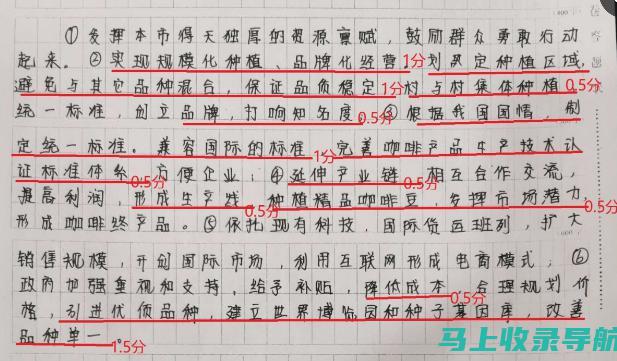 ①发挥本市得天独厚的资源禀赋，鼓励群众勇敢行动
起来。②实现规模化种植、品牌化经营1分划界定种植区域，
避免与其它品种混合，保证品质稳定1分村与村集体种植0.5分
统一标准，创立品牌，打响知名度0.5分③根据我国国情，制
定统一标准。兼容国际的标准1分完善咖啡产品生产技术认
证标准体系0.5分方便企业；④延伸产业链0.5分相互合作交流，
提高利润，形成生产线0.5分种植精品咖啡豆，发挥市场潜力0.5分
形成咖啡终产品。⑤依托现有科技，国际货运班列，扩大
销售规模，开创国际市场，利用互联网形成电商模式；⑥
政府加强重视和支持，给予补贴，降低成本0.5分合理规划价
格，引进优质品种，建立世界博览园和种子基因库，改善
品种单一。1.5分
马上收录导航